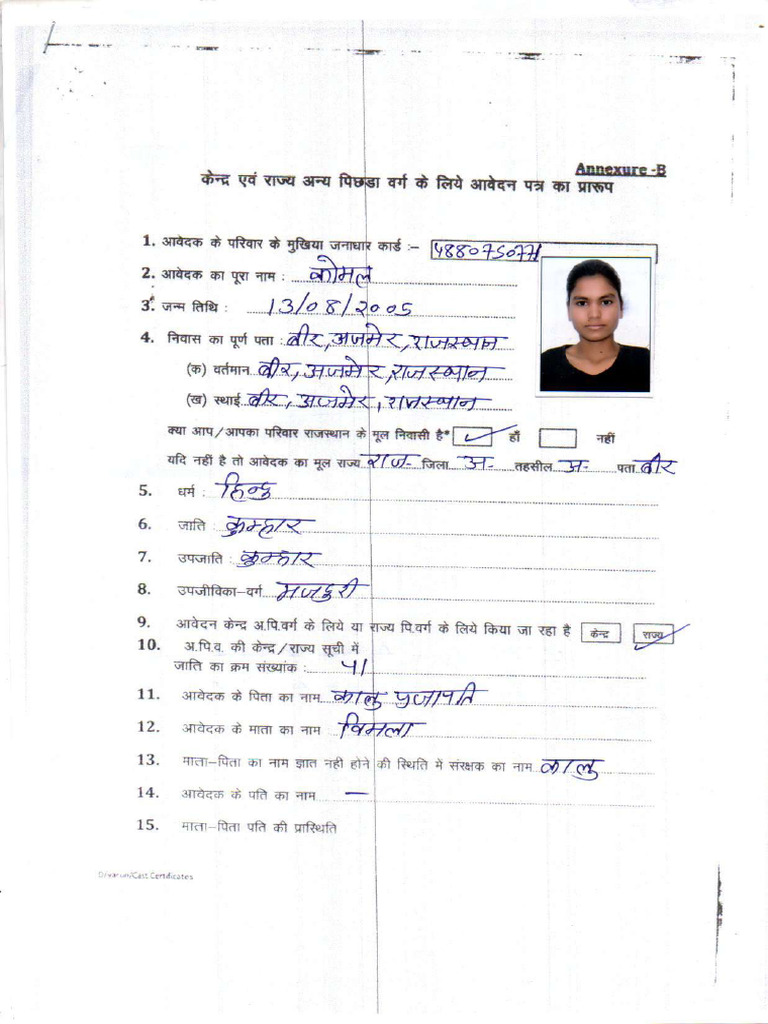 Annexure -B
केन्द्र एवं राज्य अन्य पिछडा वर्ग के लिये आवेदन पत्र का प्रारूप
1. आवेदक के परिवार के मुखिया जनाधार कार्ड :– 4880750771
2. आवेदक का पूरा नाम : कोमल
3. जन्म तिथि : 13/08/2005
4. निवास का पूर्ण पता : बीर, अजमेर, राजस्थान
(क) वर्तमान बीर, अजमेर, राजस्थान
(ख) स्थाई बीर, अजमेर, राजस्थान
क्या आप/आपका परिवार राजस्थान के मूल निवासी है* ✓ हाँ नहीं
यदि नहीं है तो आवेदक का मूल राज्य राज- जिला अ- तहसील अ- पता बीर
5. धर्म : हिन्दु
6. जाति : कुम्हार
7. उपजाति : कुम्हार
8. उपजीविका–वर्ग मजदुरी
9. आवेदन केन्द्र अ.पि.वर्ग के लिये या राज्य पि.वर्ग के लिये किया जा रहा है केन्द्र राज्य ✓
10. अ.पि.व. की केन्द्र/राज्य सूची में
जाति का क्रम संख्यांक : 41
11. आवेदक के पिता का नाम कालु प्रजापति
12. आवेदक के माता का नाम विमला
13. माता–पिता का नाम ज्ञात नही होने की स्थिति में संरक्षक का नाम कालु
14. आवेदक के पति का नाम —
15. माता–पिता पति की प्रास्थिति
Cast Certificates